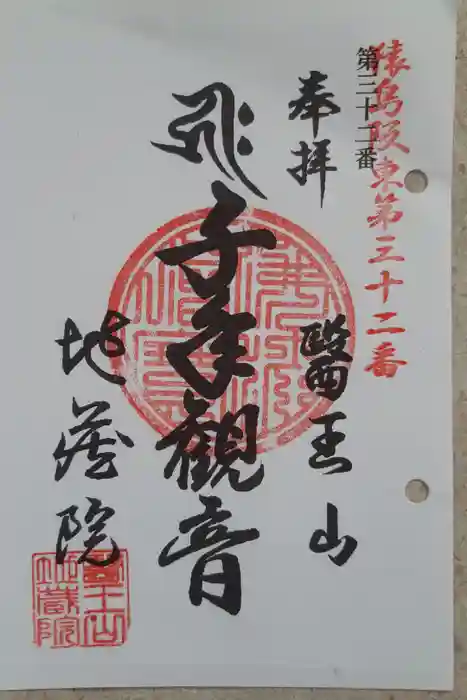 猿島阪東第三十二番
第三十二番
奉拝
醫王山
千手觀音
地蔵院
醫王山
地蔵院